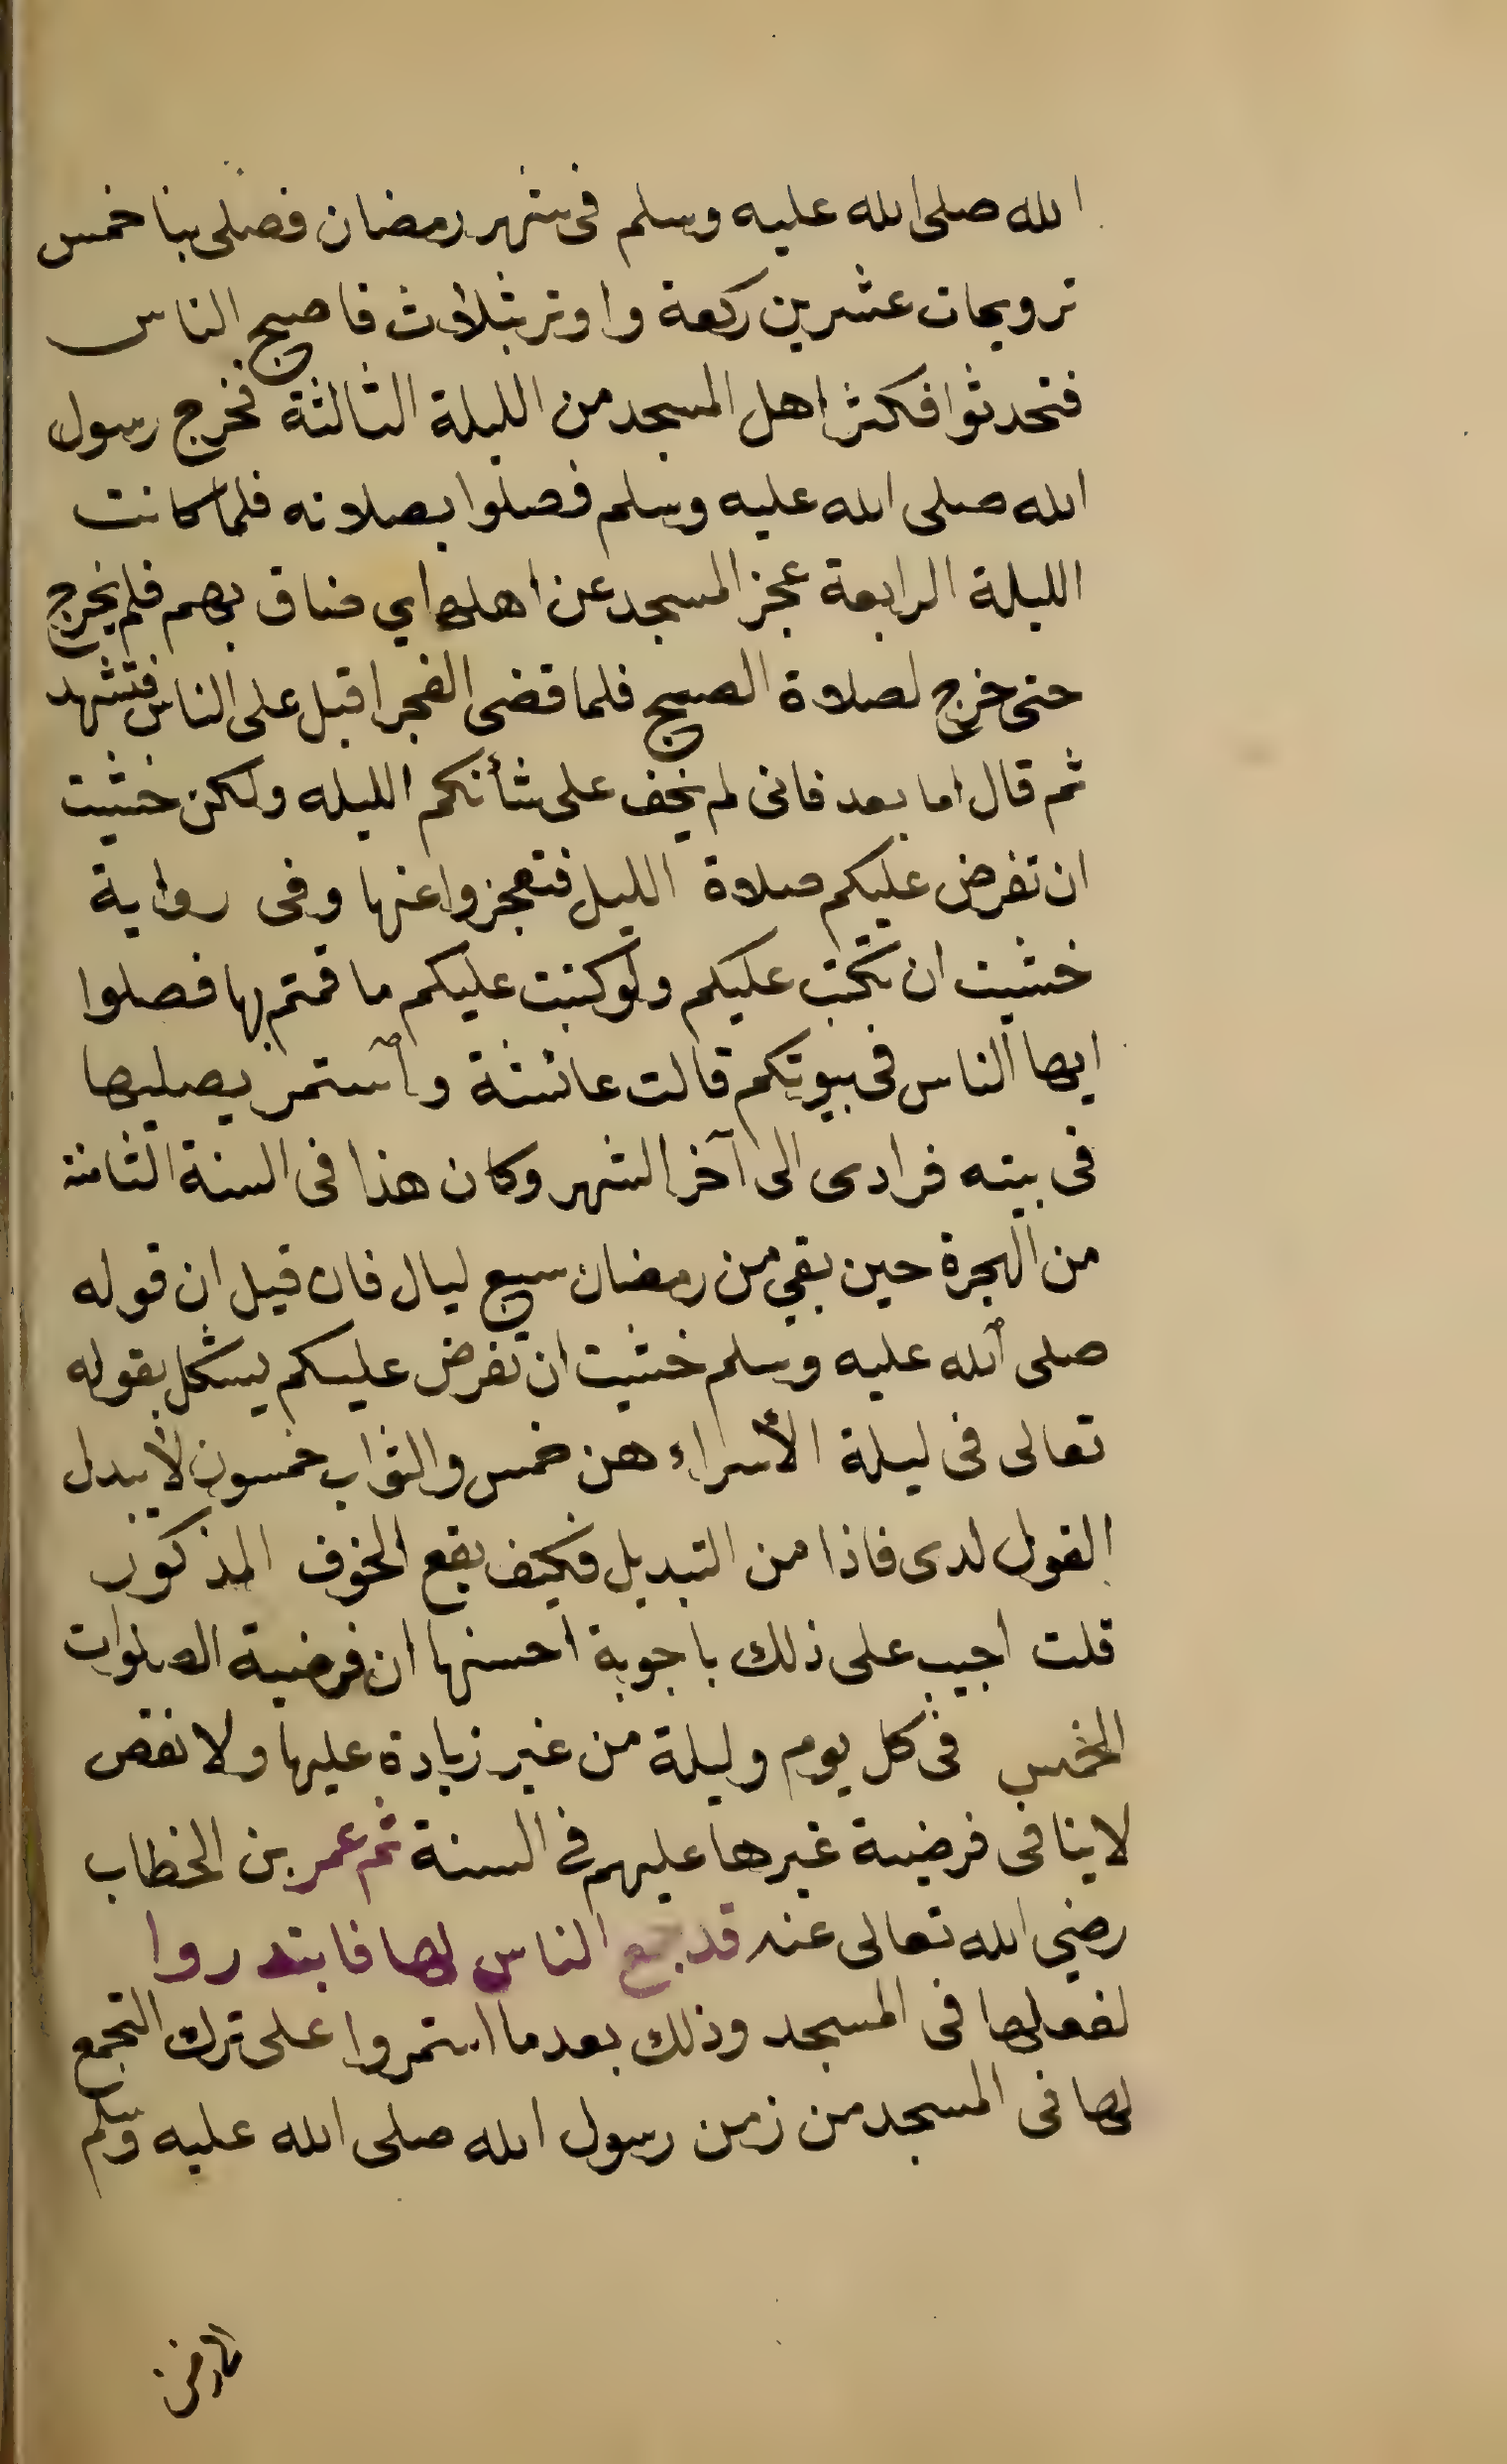 الله صلى الله عليه وسلم فى شهر رمضان فصلى بنا خمس
ترويحات عشرين ركعة واوتر بثلاث فاصبح الناس
فتحدثوا فكثر اهل المسجد من الليلة الثالثة فخرج رسول
الله صلى الله عليه وسلم فصلوا بصلاته فلما كانت
الليلة الرابعة عجز المسجد عن اهله اي ضاق بهم فلم يخرج
حتى خرج لصلاة الصبح فلما قضى الفجر اقبل على الناس فتشهد
ثم قال اما بعد فانى لم يخف على شأنكم الليله ولكن خشيت
ان تفرض عليكم صلاة الليل فتعجزوا عنها وفى رواية
خشيت ان تكتب عليكم ولو كتبت عليكم ما قمتم بها فصلوا
ايها الناس فى بيوتكم قالت عائشة وٱستمر يصليها
فى بيته فرادى الى آخر الشهر وكان هذا فى السنة الثامنة
من الهجرة حين بقي من رمضان سبع ليال فان قيل ان قوله
صلى ٱلله عليه وسلم خشيت ان تفرض عليكم يشكل بقوله
تعالى فى ليلة الأسراء هن خمس والثواب خمسون لا يبدل
القول لدى فاذا من التبديل فكيف يقع الخوف المذكور
قلت اجيب على ذلك باجوبة احسنها ان فرضية الصلوات
الخمس فى كل يوم وليلة من غير زيادة عليها ولا نقص
لاينافى فرضية غيرها عليهم فى السنة ثم عمر بن الخطاب
رضي الله تعالى عنه قد جمع الناس لها فابتدروا
لفعلها فى المسجد وذلك بعد ما استمروا على ترك التجمع
لها فى المسجد من زمن رسول الله صلى الله عليه وسلم